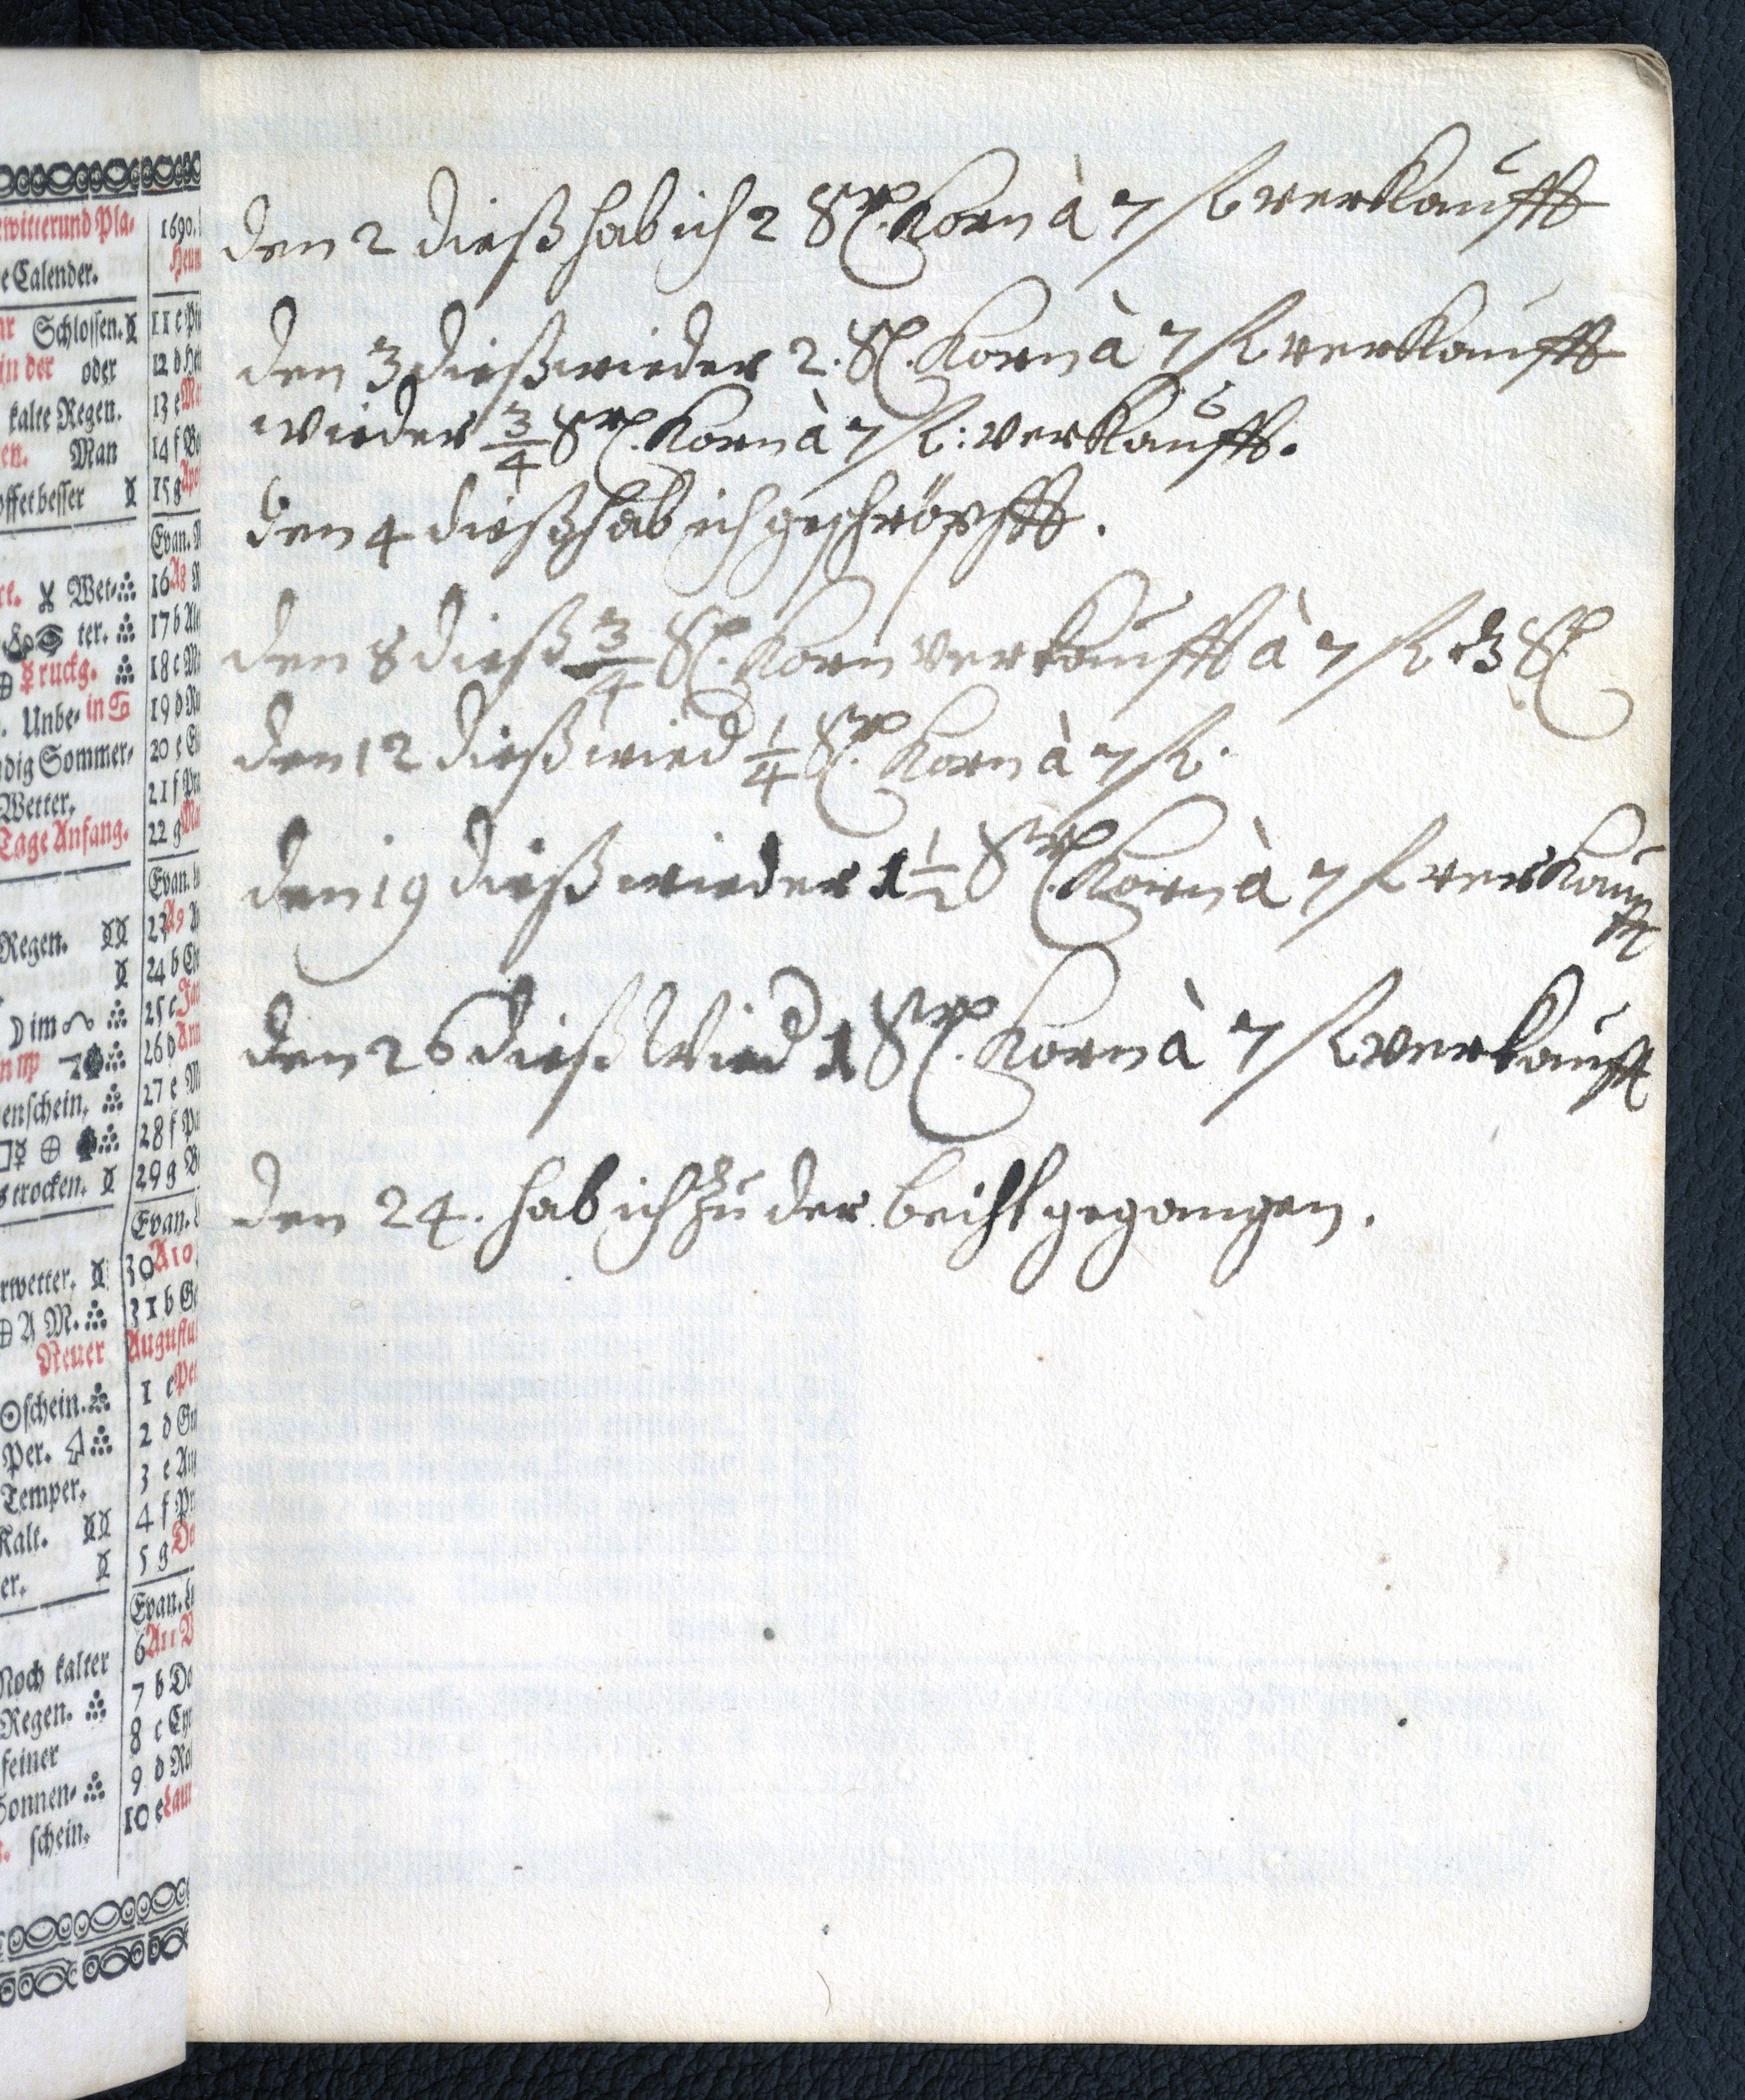 ewitter und Pla-
e Calender.
Schlossen.
in der oder
kalte Regen.
en. Man
offet besser
Wet-
ter.
ruckg.
Unbe- in
ndig Sommer-
Wetter.
Tage Anfang.
Regen.
im
enschein.
trocken.
rwetter.
A M.
Neuer
schein.
Per.
Temper.
Kalt.
er.
Noch kalter
Regen.
feiner
Sonnen-
schein.
1690.
Heum
11 c
12 d
13 e
14 f
15 g
Evan.
16 A8
17 b
18 c
19 d
20 e
21 f
22 g
Evan.
23 A9
24 b
25 c
26 d
27 e
28 f
29 g
Evan.
30 A10
31 b
Augustu
1 c
2 d
3 e
4 f
5 g
Evan.
6 A11
7 b
8 c
9 d
10 e
den 2 dieß hab ich 2 Sch. Korn à 7 fl verkaufft
den 3 dieß wieder 2. Sch. Korn à 7 fl verkaufft
wieder 3/4 Sch. Korn à 7 fl: verkaufft.
den 4 dieß hab ich geschröpfft.
den 8 dieß 3/4 Sch. Korn verkaufft à 7 fl dz Sch
den 12 dieß wied 1/4 Sch. Korn à 7 fl.
den 19 dieß wieder 1 1/2 Sch. Korn à 7 fl verkau
fft
den 26 dieß Wied 1 Sch. Korn à 7 fl verkaufft
den 24. hab ich zu der beicht gegangen.